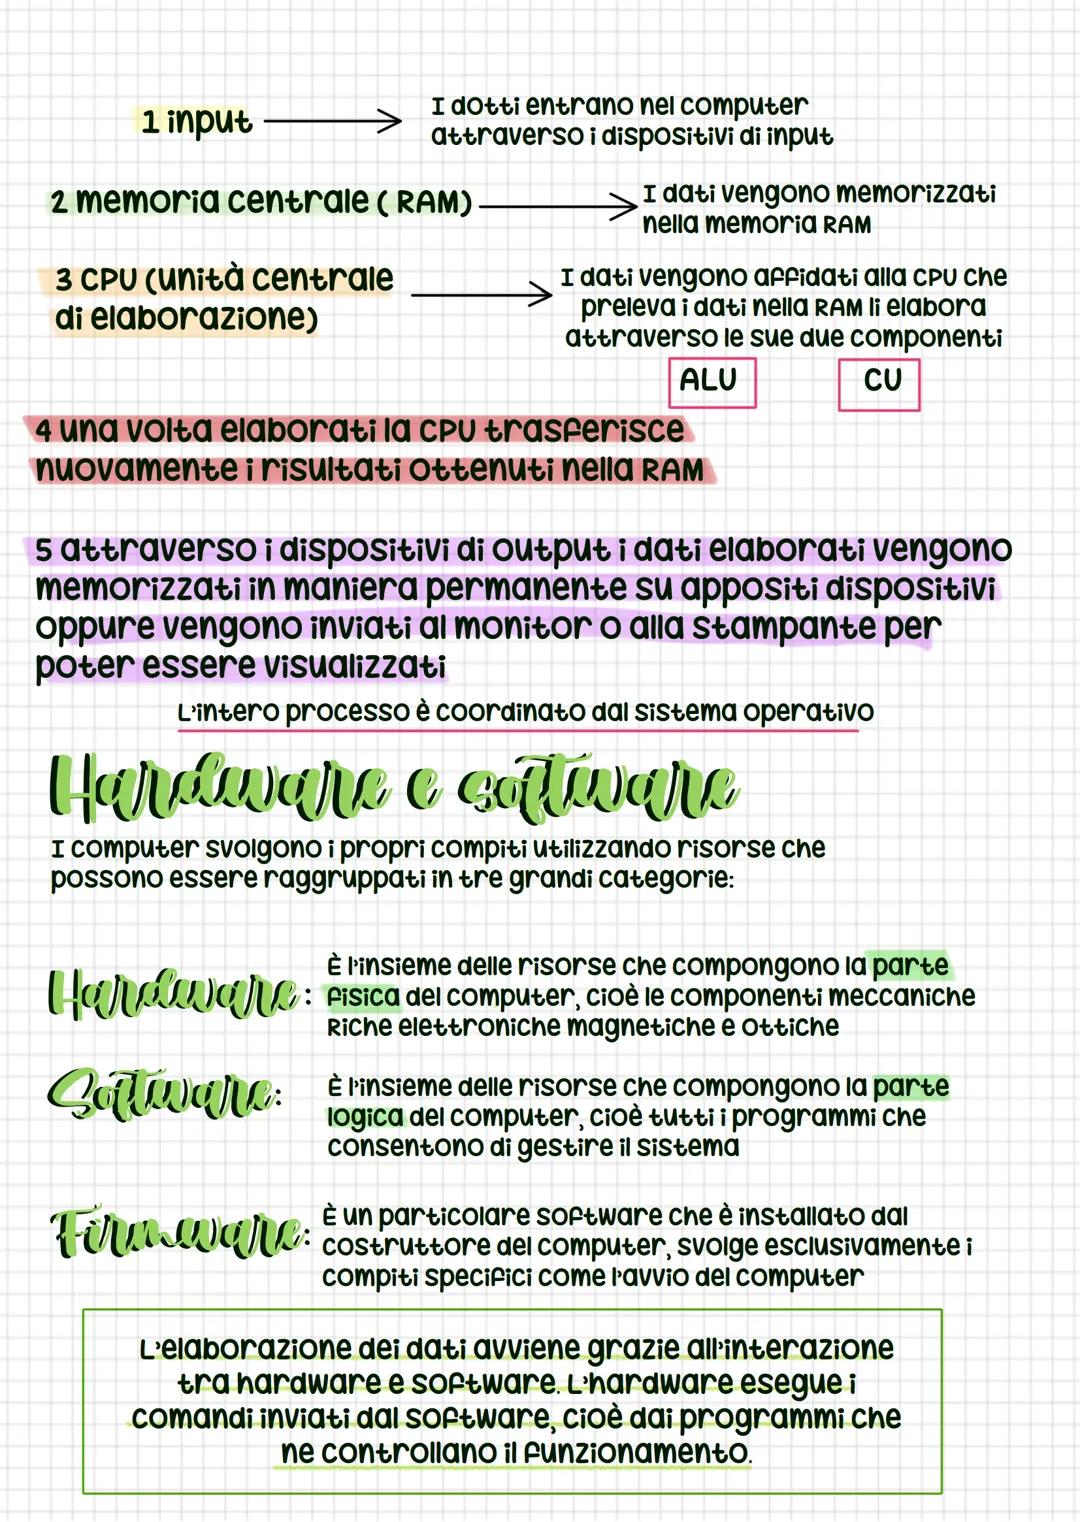 1 input
I dotti entrano nel computer
attraverso i dispositivi di input
2 memoria centrale ( RAM)
I dati vengono memorizzati
nella memoria RAM
3 CPU (unità centrale
di elaborazione)
I dati vengono affidati alla CPU che
preleva i dati nella RAM li elabora
attraverso le sue due componenti
ALU
CU
4 una volta elaborati la CPU trasferisce
nuovamente i risultati ottenuti nella RAM
5 attraverso i dispositivi di output i dati elaborati vengono
memorizzati in maniera permanente su appositi dispositivi
oppure vengono inviati al monitor o alla stampante per
poter essere visualizzati
L'intero processo è coordinato dal sistema operativo
Hardware e software
I computer svolgono i propri compiti utilizzando risorse che
possono essere raggruppati in tre grandi categorie:
Hardware:
È l'insieme delle risorse che compongono la parte
fisica del computer, cioè le componenti meccaniche
Riche elettroniche magnetiche e ottiche
Software:
È l'insieme delle risorse che compongono la parte
logica del computer, cioè tutti i programmi che
consentono di gestire il sistema
Firmware:
È un particolare software che è installato dal
costruttore del computer, svolge esclusivamente i
compiti specifici come l'avvio del computer
L'elaborazione dei dati avviene grazie all'interazione
tra hardware e software. L'hardware esegue i
comandi inviati dal software, cioè dai programmi che
ne controllano il funzionamento.